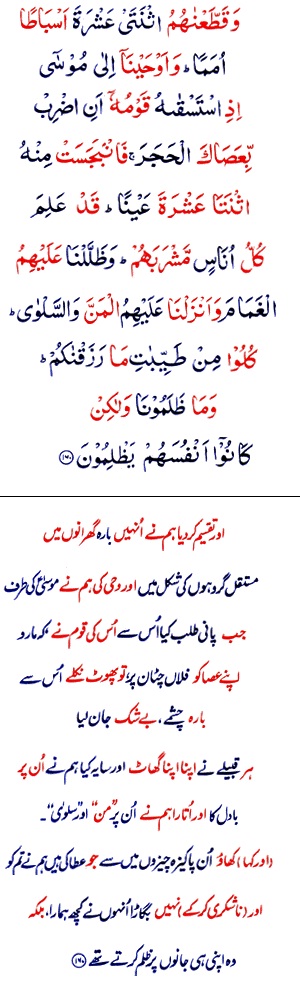 وَقَطَّعْنٰهُمُ اثْنَتَيْ عَشْرَةَ اَسْبَاطًا
اُمَمًا ؕ وَاَوْحَيْنَاۤ اِلٰى مُوْسٰٓى
اِذِ اسْتَسْقٰىهُ قَوْمُهٗۤ اَنِ اضْرِبْ
بِّعَصَاكَ الْحَجَرَ ۚ فَانْۢبَجَسَتْ مِنْهُ
اثْنَتَا عَشْرَةَ عَيْنًا ؕ قَدْ عَلِمَ
كُلُّ اُنَاسٍ مَّشْرَبَهُمْ ؕ وَظَلَّلْنَا عَلَيْهِمُ
الْغَمَامَ وَاَنْزَلْنَا عَلَيْهِمُ الْمَنَّ وَالسَّلْوٰى ؕ
كُلُوْا مِنْ طَيِّبٰتِ مَا رَزَقْنٰكُمْ ؕ
وَمَا ظَلَمُوْنَا وَلٰكِنْ
كَانُوْۤا اَنْفُسَهُمْ يَظْلِمُوْنَ ﴿۱۶۰﴾
اور تقسیم کردیا ہم نے اُنہیں بارہ گھرانوں میں
مستقل گروہوں کی شکل میں اور وحی کی ہم نے موسیٰؑ کی طرف
جب پانی طلب کیا اُس سے اُس کی قوم نے کہ مارو
اپنے عصا کو فلاں چٹان پر، تو پھوٹ نکلے اُس سے
بارہ چشمے، بے شک جان لیا
ہر قبیلے نے اپنا اپنا گھاٹ اور سایہ کیا ہم نے اُن پر
بادل کا اور اُتارا ہم نے اُن پر ”من“ اور ”سلویٰ“۔
(اور کہا) کھاؤ اُن پاکیزہ چیزوں میں سے جو عطا کی ہیں ہم نے تم کو
اور (ناشکری کرکے) نہیں بگاڑا اُنہوں نے کچھ ہمارا، بلکہ
وہ اپنی ہی جانوں پر ظلم کرتے تھے ﴿۱۶۰﴾